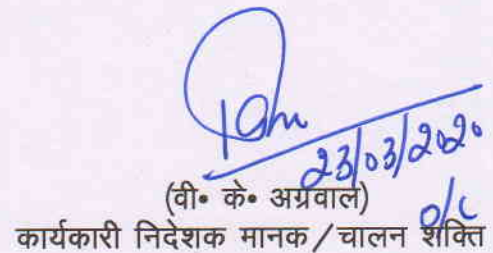 23/03/2020
(वी॰ के॰ अग्रवाल)
o/c
कार्यकारी निदेशक मानक/चालन शक्ति